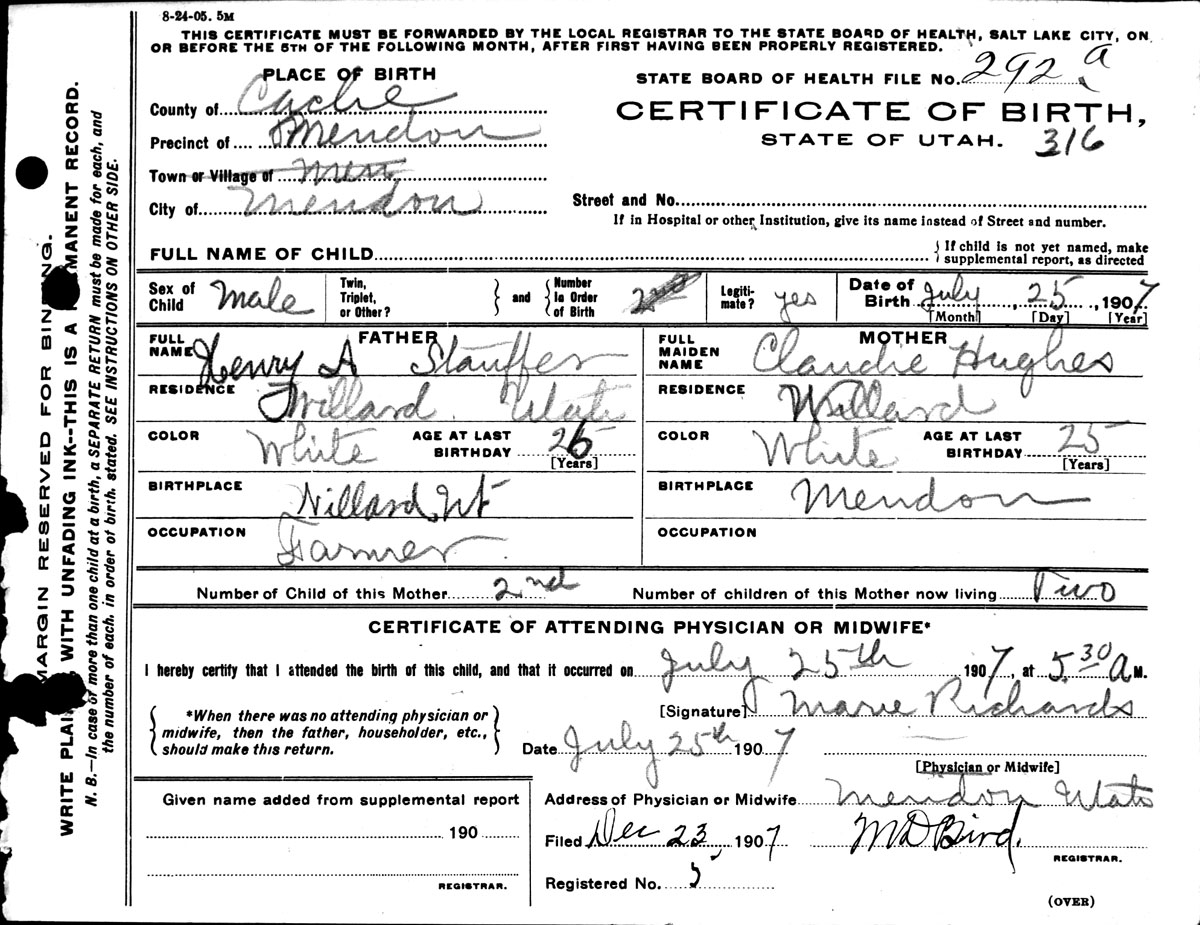 8-24-05. 5M
THIS CERTIFICATE MUST BE FORWARDED BY THE LOCAL REGISTRAR TO THE STATE BOARD OF HEALTH, SALT LAKE CITY, ON
OR BEFORE THE 5TH OF THE FOLLOWING MONTH, AFTER FIRST HAVING BEEN PROPERLY REGISTERED.
PLACE OF BIRTH
County of Cache
Precinct of Mendon
Town or Village of
City of Mendon
STATE BOARD OF HEALTH FILE No. 292 a
CERTIFICATE OF BIRTH,
STATE OF UTAH. 316
Street and No.
If in Hospital or other Institution, give its name instead of Street and number.
FULL NAME OF CHILD
{If child is not yet named, make
supplemental report, as directed
Sex of Child Male Twin, Triplet, or Other? } and { Number In Order of Birth 2nd Legiti-mate? yes Date of Birth July, 25, 1907
[Month] [Day] [Year]
FATHER
FULL NAME Henry A Stauffer
RESIDENCE Willard Utah
COLOR White AGE AT LAST BIRTHDAY 26
[Years]
BIRTHPLACE Willard, Ut
OCCUPATION Farmer
MOTHER
FULL MAIDEN NAME Claudie Hughes
RESIDENCE Willard
COLOR White AGE AT LAST BIRTHDAY 25
[Years]
BIRTHPLACE Mendon
OCCUPATION
Number of Child of this Mother 2nd Number of children of this Mother now living Two
CERTIFICATE OF ATTENDING PHYSICIAN OR MIDWIFE*
I hereby certify that I attended the birth of this child, and that it occurred on July 25th 1907, at 5.30 A M.
{*When there was no attending physician or
midwife, then the father, householder, etc.,
should make this return.}
[Signature] Marie Richards
Date July 25th 1907
[Physician or Midwife]
Given name added from supplemental report
190
REGISTRAR.
Address of Physician or Midwife Mendon Utah
Filed Dec 23, 1907 M D Bird.
REGISTRAR.
Registered No. 5
(OVER)
MARGIN RESERVED FOR BINDING.
WRITE PLAINLY, WITH UNFADING INK--THIS IS A PERMANENT RECORD.
N. B.—In case of more than one child at a birth, a SEPARATE RETURN must be made for each, and
the number of each, in order of birth, stated. SEE INSTRUCTIONS ON OTHER SIDE.